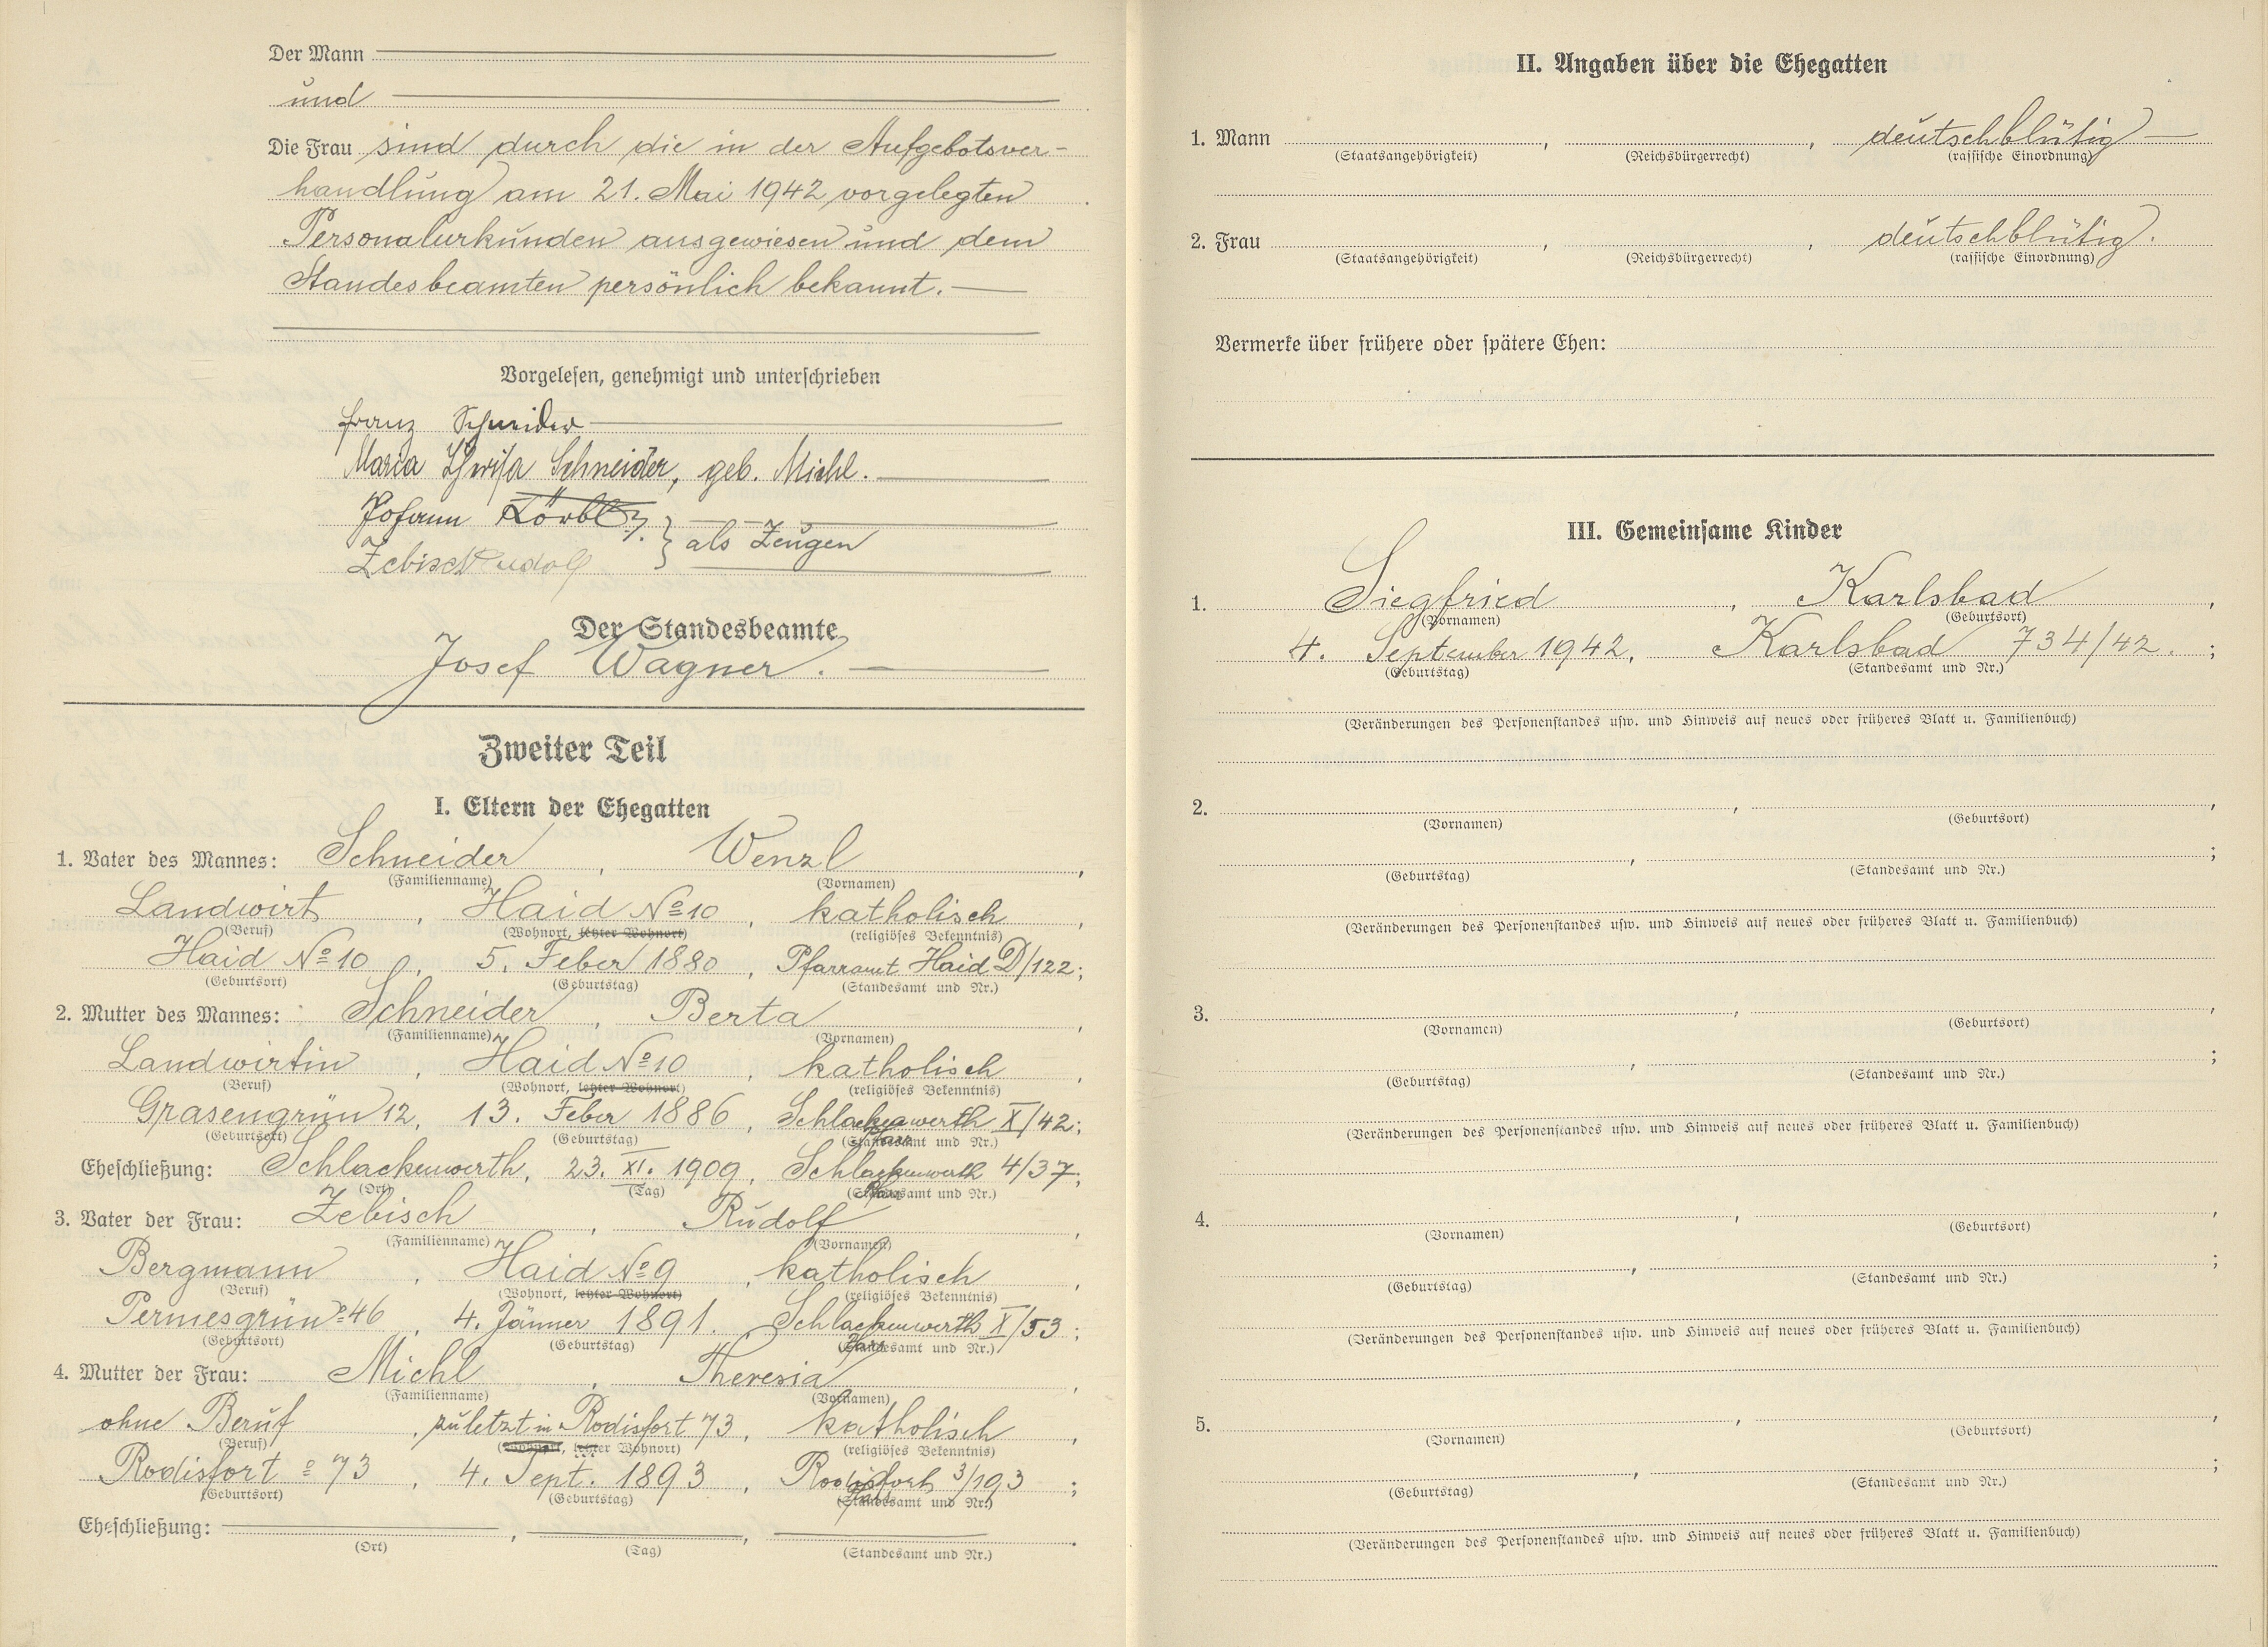 Der Mann
und
Die Frau sind durch die in der Aufgebotsver-
handlung am 21. Mai 1942 vorgelegten
Personalurkunden ausgewiesen und dem
Standesbeamten persönlich bekannt.
Vorgelesen, genehmigt und unterschrieben
Franz Schneider
Maria Theresia Schneider, geb. Michl.
Johann
Zebisch Rudolf } als Zeugen
Der Standesbeamte
Josef Wagner.
Zweiter Teil
I. Eltern der Ehegatten
1. Vater des Mannes: Schneider, Wenzl,
(Familienname) (Vornamen)
Landwirt, Haid № 10, katholisch,
(Beruf) (Wohnort, letzter Wohnort) (religiöses Bekenntnis)
Haid № 10, 5. Feber 1880, Pfarramt Haid D/122;
(Geburtsort) (Geburtstag) (Standesamt und Nr.)
2. Mutter des Mannes: Schneider, Berta,
(Familienname) (Vornamen)
Landwirtin, Haid № 10, katholisch,
(Beruf) (Wohnort, letzter Wohnort) (religiöses Bekenntnis)
Grasengrün 12, 13. Feber 1886, Schlackenwerth X/42;
(Geburtsort) (Geburtstag) (Standesamt und Nr.)
Eheschließung: Schlackenwerth, 23. XI. 1909, Schlackenwerth 4/37;
(Ort) (Tag) (Standesamt und Nr.)
3. Vater der Frau: Zebisch, Rudolf,
(Familienname) (Vornamen)
Bergmann, Haid № 9, katholisch,
(Beruf) (Wohnort, letzter Wohnort) (religiöses Bekenntnis)
Permesgrün º 46, 4. Jänner 1891. Schlackenwerth X/53;
(Geburtsort) (Geburtstag) (Standesamt und Nr.)
4. Mutter der Frau: Michl, Theresia,
(Familienname) (Vornamen)
ohne Beruf, zuletzt in Rodisfort 73, katholisch,
(Beruf) (Wohnort, letzter Wohnort) (religiöses Bekenntnis)
Rodisfort º 73, 4. Sept. 1893, Rodisfort 3/193;
(Geburtsort) (Geburtstag) (Standesamt und Nr.)
Eheschließung: , , .
(Ort) (Tag) (Standesamt und Nr.)
II. Angaben über die Ehegatten
1. Mann , , deutschblütig
(Staatsangehörigkeit) (Reichsbürgerrecht) (rassische Einordnung)
2. Frau , , deutschblütig.
(Staatsangehörigkeit) (Reichsbürgerrecht) (rassische Einordnung)
Vermerke über frühere oder spätere Ehen:
III. Gemeinsame Kinder
1. Siegfried, Karlsbad,
(Vornamen) (Geburtsort)
4. September 1942, Karlsbad 734/42.;
(Geburtstag) (Standesamt und Nr.)
(Veränderungen des Personenstandes usw. und Hinweis auf neues oder früheres Blatt u. Familienbuch)
2. , ,
(Vornamen) (Geburtsort)
, ;
(Geburtstag) (Standesamt und Nr.)
(Veränderungen des Personenstandes usw. und Hinweis auf neues oder früheres Blatt u. Familienbuch)
3. , ,
(Vornamen) (Geburtsort)
, ;
(Geburtstag) (Standesamt und Nr.)
(Veränderungen des Personenstandes usw. und Hinweis auf neues oder früheres Blatt u. Familienbuch)
4. , ,
(Vornamen) (Geburtsort)
, ;
(Geburtstag) (Standesamt und Nr.)
(Veränderungen des Personenstandes usw. und Hinweis auf neues oder früheres Blatt u. Familienbuch)
5. , ,
(Vornamen) (Geburtsort)
, ;
(Geburtstag) (Standesamt und Nr.)
(Veränderungen des Personenstandes usw. und Hinweis auf neues oder früheres Blatt u. Familienbuch)